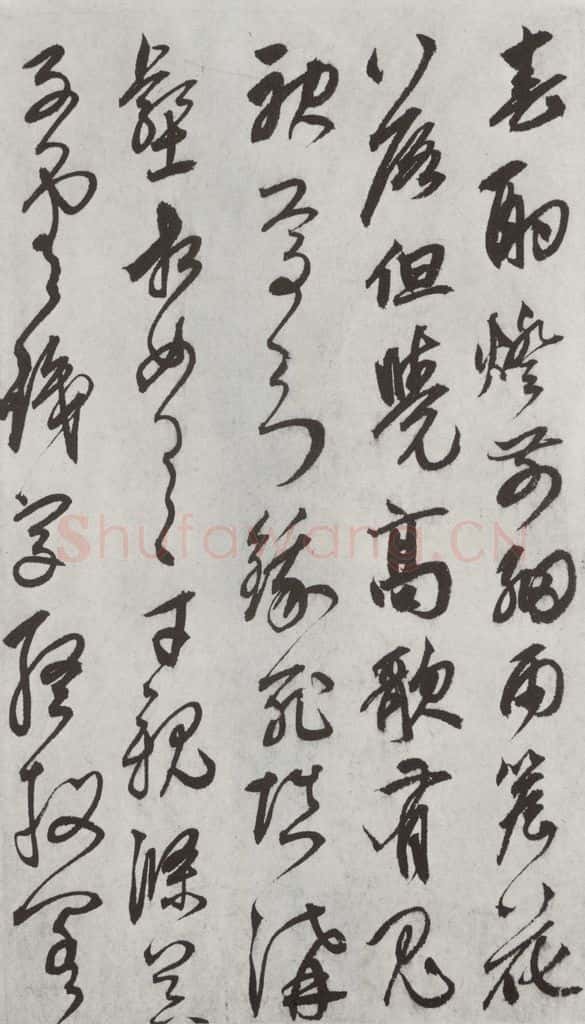 春酌燈前細雨簷花
落但曉高歌有鬼
神焉知餓死填溝
壑相如逸才親滌器
子雲識字終投閣
Shufawang.CN